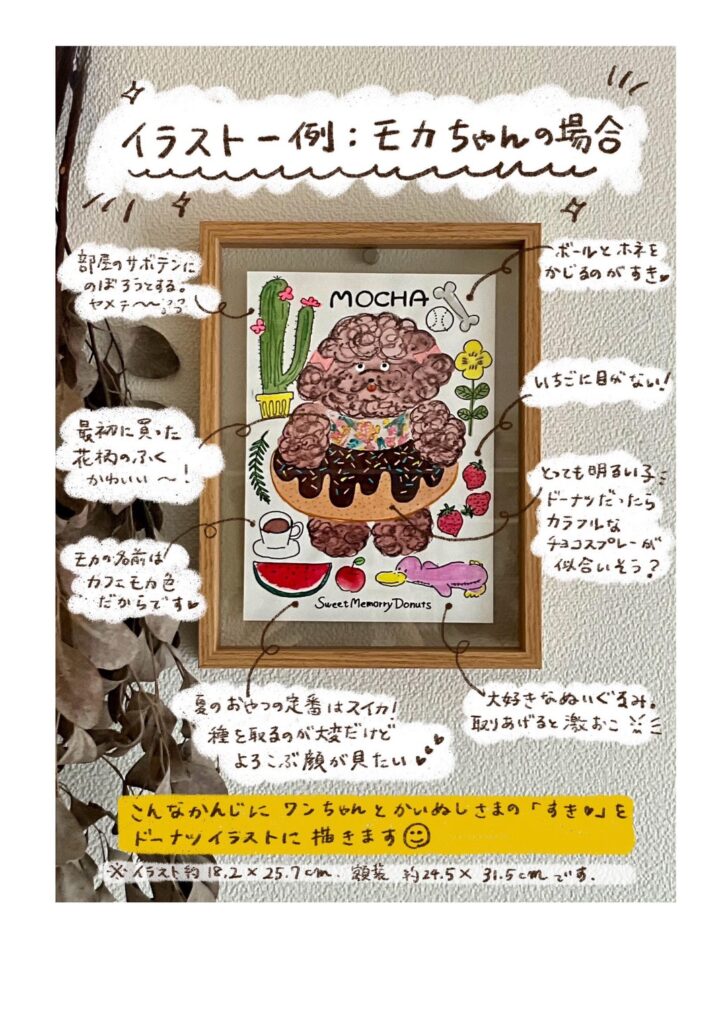 イラスト一例：モカちゃんの場合
部屋のサボテンに
のぼろうとする。
ヤメテ〜〜
ボールとホネを
かじるのがすき♥
MOCHA
いちごに目がない！
最初に買った
花柄のふく
かわいい〜！
とっても明るい子
ドーナツだったら
カラフルな
チョコスプレーが
似合いそう？
モカの名前は
カフェモカ色
だからです♥
Sweet Memorry Donuts
夏のおやつの定番はスイカ！
種を取るのが大変だけど
よろこぶ顔が見たい♥♥♥
大好きなぬいぐるみ。
取りあげると激おこ
こんなかんじに ワンちゃんとかいぬしさまの「すき♥」を
ドーナツイラストに描きます☺
※イラスト約18.2×25.7cm. 額装 約24.5×31.5cmです.